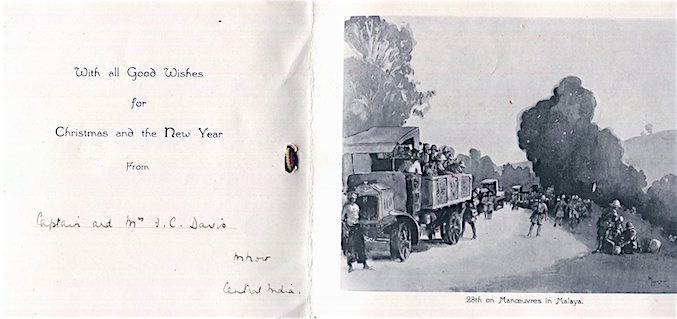 With all Good Wishes
for
Christmas and the New Year
From
Captain and Mrs F. C. Davis
Mhow
Central India.
28th on Manœuvres in Malaya.